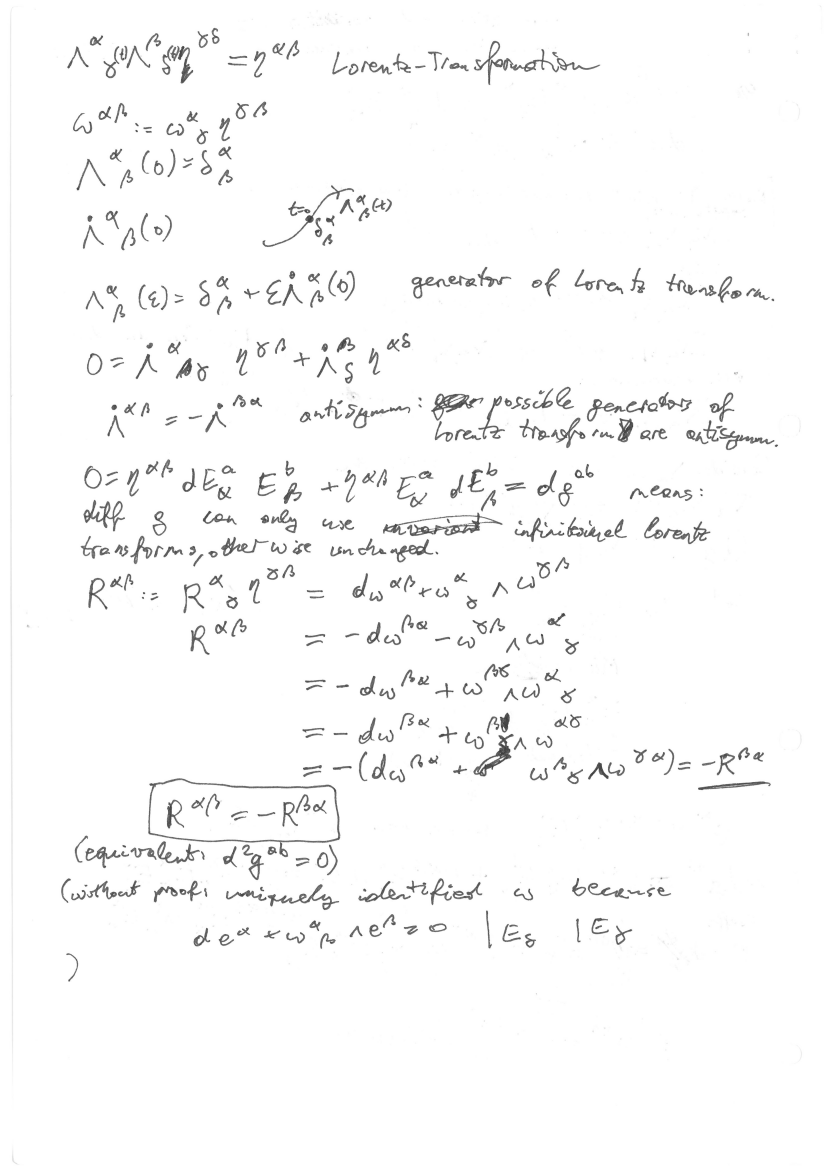 Λ^α_γ(t) Λ^β_δ(t) η^γδ = η^αβ Lorentz-Transformation
ω^αβ := ω^α_γ η^γβ
Λ^α_β(0) = δ^α_β
Λ̇^α_β(0) t=0 δ^α_β Λ^α_β(t)
Λ^α_β(ε) = δ^α_β + εΛ̇^α_β(0) generator of Lorentz transform.
0 = Λ̇^α_γ η^γβ + Λ̇^β_δ η^αδ
Λ̇^αβ = -Λ̇^βα antisymm: possible generators of
Lorentz transform are antisymm.
0 = η^αβ dE^a_α E^b_β + η^αβ E^a_α dE^b_β = dg^ab means:
diff g can only use infinitesimal Lorentz
transforms, otherwise unchanged.
R^αβ := R^α_γ η^γβ = dω^αβ + ω^α_γ ∧ ω^γβ
R^αβ = -dω^βα - ω^γβ ∧ ω^α_γ
= -dω^βα + ω^βγ ∧ ω^α_γ
= -dω^βα + ω^β_γ ∧ ω^αγ
= -(dω^βα + ω^β_γ ∧ ω^γα) = -R^βα
R^αβ = -R^βα
(equivalent: d²g^ab = 0)
(without proof: uniquely identified ω because
de^α + ω^α_β ∧ e^β = 0 | E_δ | E_γ
)